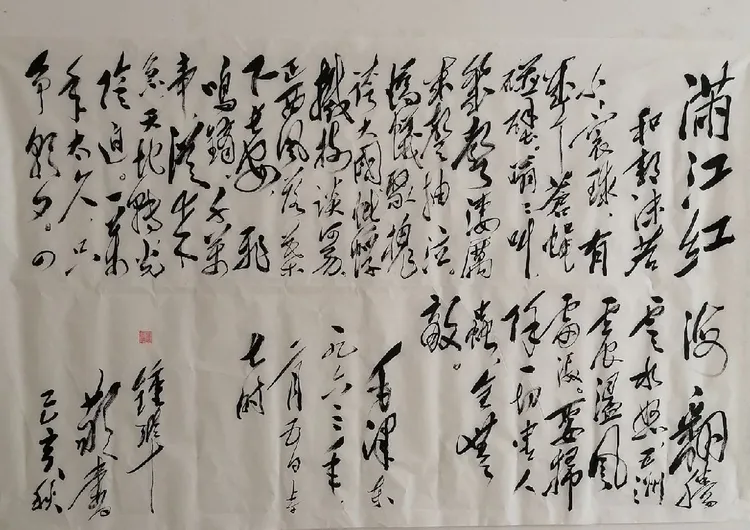 满江红
和郭沫若
小小寰球,有
几个苍蝇
碰壁。嗡嗡叫,
几声凄厉
几声抽泣。
蚂蚁缘槐
夸大国,蚍蜉
撼树谈何易。
正西风落叶
下长安,飞
鸣镝。多少
事,从来
急。天地转,光
阴迫。一万
年太久,只
争朝夕。四
海翻腾
云水怒,五洲
震荡风
雷激。要扫
除一切害人
虫,全无
敌。
毛泽东
一九六三年
月五日
七时
敬书
己亥秋